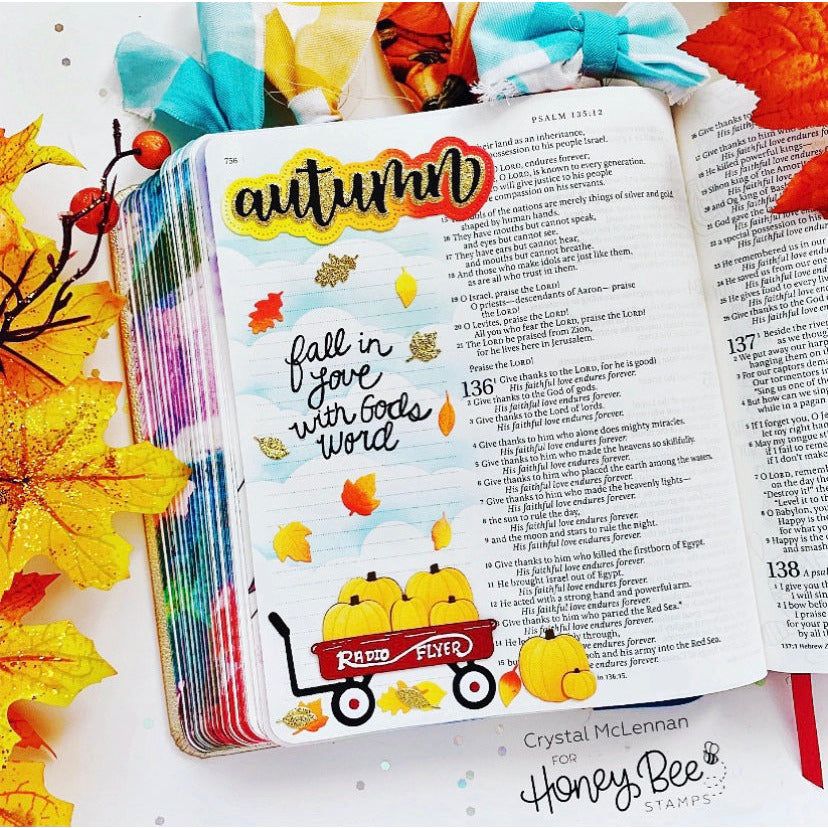 PSALM 135:12
756
autumn
fall in
love
with Gods
word
RADIO FLYER
their land as an inheritance,
possession to his people Israel.
LORD, endures forever;
O LORD, is known to every generation.
will give justice to his people
compassion on his servants.
of the nations are merely things of silver and gold,
shaped by human hands.
16 They have mouths but cannot speak,
and eyes but cannot see.
17 They have ears but cannot hear,
and mouths but cannot breathe.
18 And those who make idols are just like them,
as are all who trust in them.
19 O Israel, praise the LORD!
O priests—descendants of Aaron— praise
the LORD!
20 O Levites, praise the LORD!
All you who fear the LORD, praise the LORD!
21 The LORD be praised from Zion,
for he lives here in Jerusalem.
Praise the LORD!
136 1 Give thanks to the LORD, for he is good!
His faithful love endures forever.
2 Give thanks to the God of gods.
His faithful love endures forever.
3 Give thanks to the Lord of lords.
His faithful love endures forever.
4 Give thanks to him who alone does mighty miracles.
His faithful love endures forever.
5 Give thanks to him who made the heavens so skillfully.
His faithful love endures forever.
6 Give thanks to him who placed the earth among the waters.
His faithful love endures forever.
7 Give thanks to him who made the heavenly lights—
His faithful love endures forever.
8 the sun to rule the day,
His faithful love endures forever.
9 and the moon and stars to rule the night.
His faithful love endures forever.
10 Give thanks to him who killed the firstborn of Egypt.
His faithful love endures forever.
11 He brought Israel out of Egypt.
His faithful love endures forever.
12 He acted with a strong hand and powerful arm.
His faithful love endures forever.
Give thanks to him who parted the Red Sea.*
His faithful love endures forever.
14 He through,
His faithful love endures forever.
15 and his army into the Red Sea.
His faithful love endures forever.
in 136:15.
16 Give thanks to
His faithful
17 Give thanks to him
His faithful
18 He killed powerful kings—
His faithful
19 Sihon king of the Amorites
His faithful
20 and Og king of
His faithful
21 God gave the
His faithful
22 a special possession to his
His faithful love
23 He remembered us in our
His faithful love
24 He saved us from our
His faithful love
25 He gives food to every living
His faithful love
26 Give thanks to the God
His faithful love
137 1 Beside the rivers
as we thought
2 We put away our harps
hanging them on the
3 For our captors
Our tormentors
"Sing us one of the
4 But how can we sing
while in a pagan
5 If I forget you, O
let my right hand
6 May my tongue
if I fail to remember
if I don't make
7 O LORD, remember
on the day
"Destroy it!"
"Level it to
8 O Babylon, you
Happy is the
for what you
9 Happy is the
and smash
138 A psalm
1 I give you
I will sing
2 I bow before
I praise
for your
by all
137:1 Hebrew
Crystal McLennan
FOR
Honey Bee
STAMPS